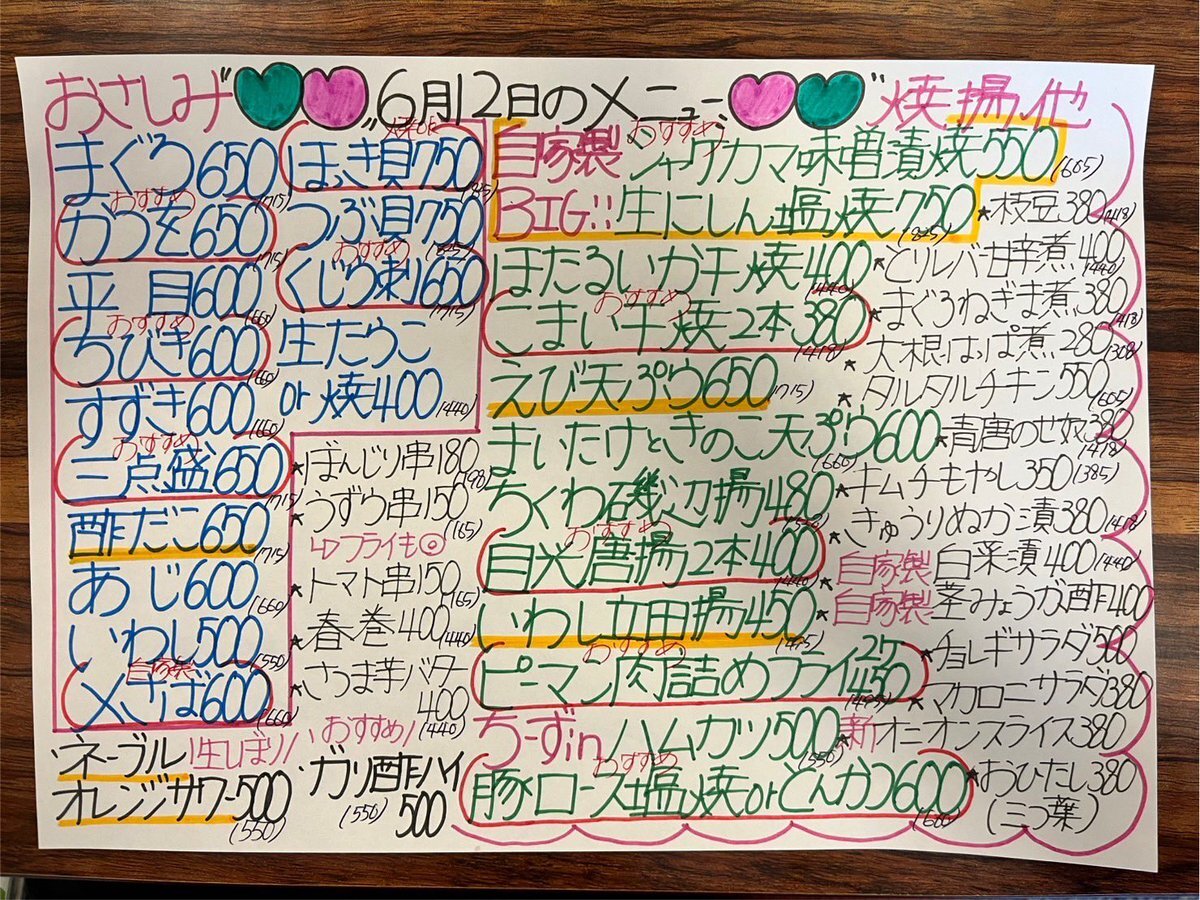 おさしみ
6月12日のメニュー
焼揚他
まぐろ650(715)
おすすめ
かつを650(715)
平目600(660)
おすすめ
ちびき600(660)
すずき600(660)
おすすめ
三点盛650(715)
酢だこ650(715)
あじ600(660)
いわし500(550)
自家製
〆さば600(660)
焼or
ほっき貝750(825)
つぶ貝750(825)
おすすめ
くじら刺650(715)
生たらこ
or焼400(440)
★ぼんじり串180(198)
★うずら串150(165)
↳フライも◎
★トマト串150(165)
★春巻400(440)
★さつま芋バター
400(440)
おすすめ
ネーブル生しぼり
オレンジサワー500
(550)
ガリ酢ハイ
(550)500
おすすめ
自家製シャケカマ味噌漬焼550(605)
BIG!!生にしん塩焼750(825)
ほたるいか干焼400(440)
おすすめ
こまい干焼2本380(418)
えび天ぷら650(715)
まいたけときのこ天ぷら600(660)
ちくわ磯辺揚480
おすすめ
目光唐揚2本400(440)
いわし立田揚450(495)
おすすめ
ピーマン肉詰めフライ2ケ450(495)
ちーずinハムカツ500(550)
おすすめ
豚ロース塩焼orとんかつ600
★枝豆380(418)
★とりレバー甘辛煮400(440)
★まぐろねぎま煮380(418)
★大根はっぱ煮280(308)
★タルタルチキン550(605)
★青唐のせ奴380(418)
★キムチもやし350(385)
★きゅうりぬか漬380(418)
★自家製白菜漬400(440)
★自家製茎みょうが酢400
★チョレギサラダ500
★マカロニサラダ380
★新オニオンスライス380
★おひたし380
(三つ葉)